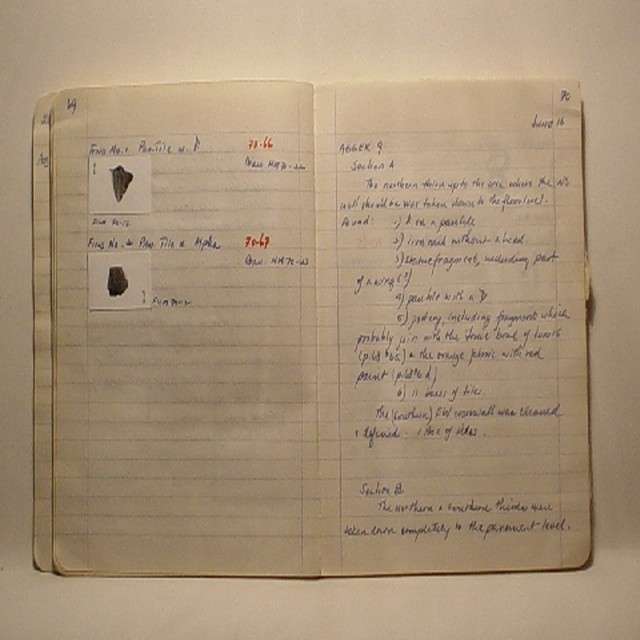 69
Find No. 1 Pan Tile w.
70-66
Neg. HM 70-22
Film 70-12
Find No. 2 Pan Tile Alpha
70-67
Neg. HM 70-23
70
June 16
AGGER 9
Section A
The northern third up to the line where the N/S
wall should be was taken down to the floor level.
Found: 1)
2) iron nail without a head.
3) stone fragments, including part
of a wing (?)
4) pantile with a
5) pottery, including fragments which
probably join with the bowl of
(p. 68 #65) & the orange with red
paint (p. 68 #61)
6) 11 boxes of tiles.
The (southern) E/W crosswall was cleaned
& defined - 1 box of tiles.
Section B
The northern & southern thirds were
taken down completely to the pavement level.